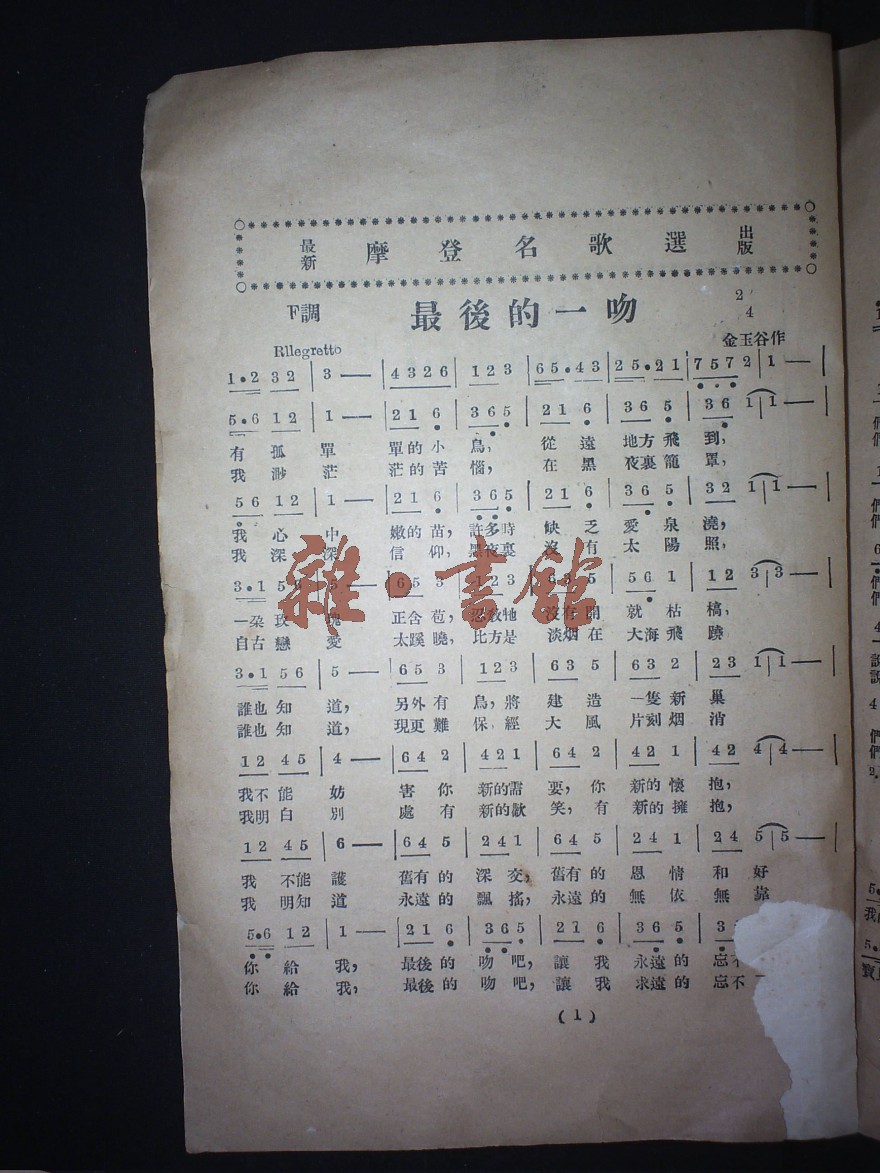 最新 摩登名歌選 出版
F調 最後的一吻 2/4
金玉谷作
Rllegretto
1•2 32 | 3 — | 4326 | 123 | 65•43 | 25•21 | 7572 | 1 — |
5•6 12 | 1 — | 21 6 | 365 | 21 6 | 36 5 | 36 1 | 1 — |
有孤單 單的小鳥, 從遠地方飛到,
我渺茫 茫的苦惱, 在黑夜裏籠罩,
56 12 | 1 — | 21 6 | 365 | 21 6 | 36 5 | 32 1 | 1 —
我心中 嫩的苗, 許多時缺乏愛泉澆,
我深深 信仰, 黑夜裏沒有太陽照,
3•1 56 | 5 — | 65 3 | 123 | 63 5 | 56 1 | 12 3 | 3 —
一朶玫瑰 正含苞, 忍教牠沒有開就枯槁,
自古戀愛 太蹊曉, 比方是淡烟在大海飛蹺
3•1 56 | 5 — | 65 3 | 123 | 63 5 | 63 2 | 23 1 | 1 —
誰也知道, 另外有鳥, 將建造一隻新巢
誰也知道, 現更難保經大風片刻烟消
12 45 | 4 — | 64 2 | 421 | 64 2 | 42 1 | 42 4 | 4 —
我不能妨害你新的需要, 你新的懷抱,
我明白別處有新的歡笑, 有新的擁抱,
12 45 | 6 — | 64 5 | 241 | 64 5 | 24 1 | 24 5 | 5 —
我不能護舊有的深交, 舊有的恩情和好
我明知道永遠的飄搖, 永遠的無依無靠
5•6 12 | 1 — | 21 6 | 365 | 21 6 | 36 5 | 3
你給我, 最後的吻吧, 讓我永遠的忘不
你給我, 最後的吻吧, 讓我求遠的忘不
(1)
雜·書館